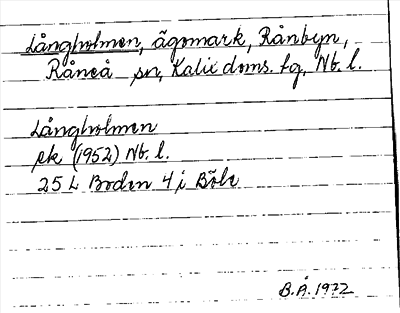 Långholmen, ägomark, Rånbyn,
Råneå sn, Kalix doms. tg, Nb. l.
Långholmen
ek (1952) Nb. l.
25 L Boden 4 i Böle
B.Å. 1972